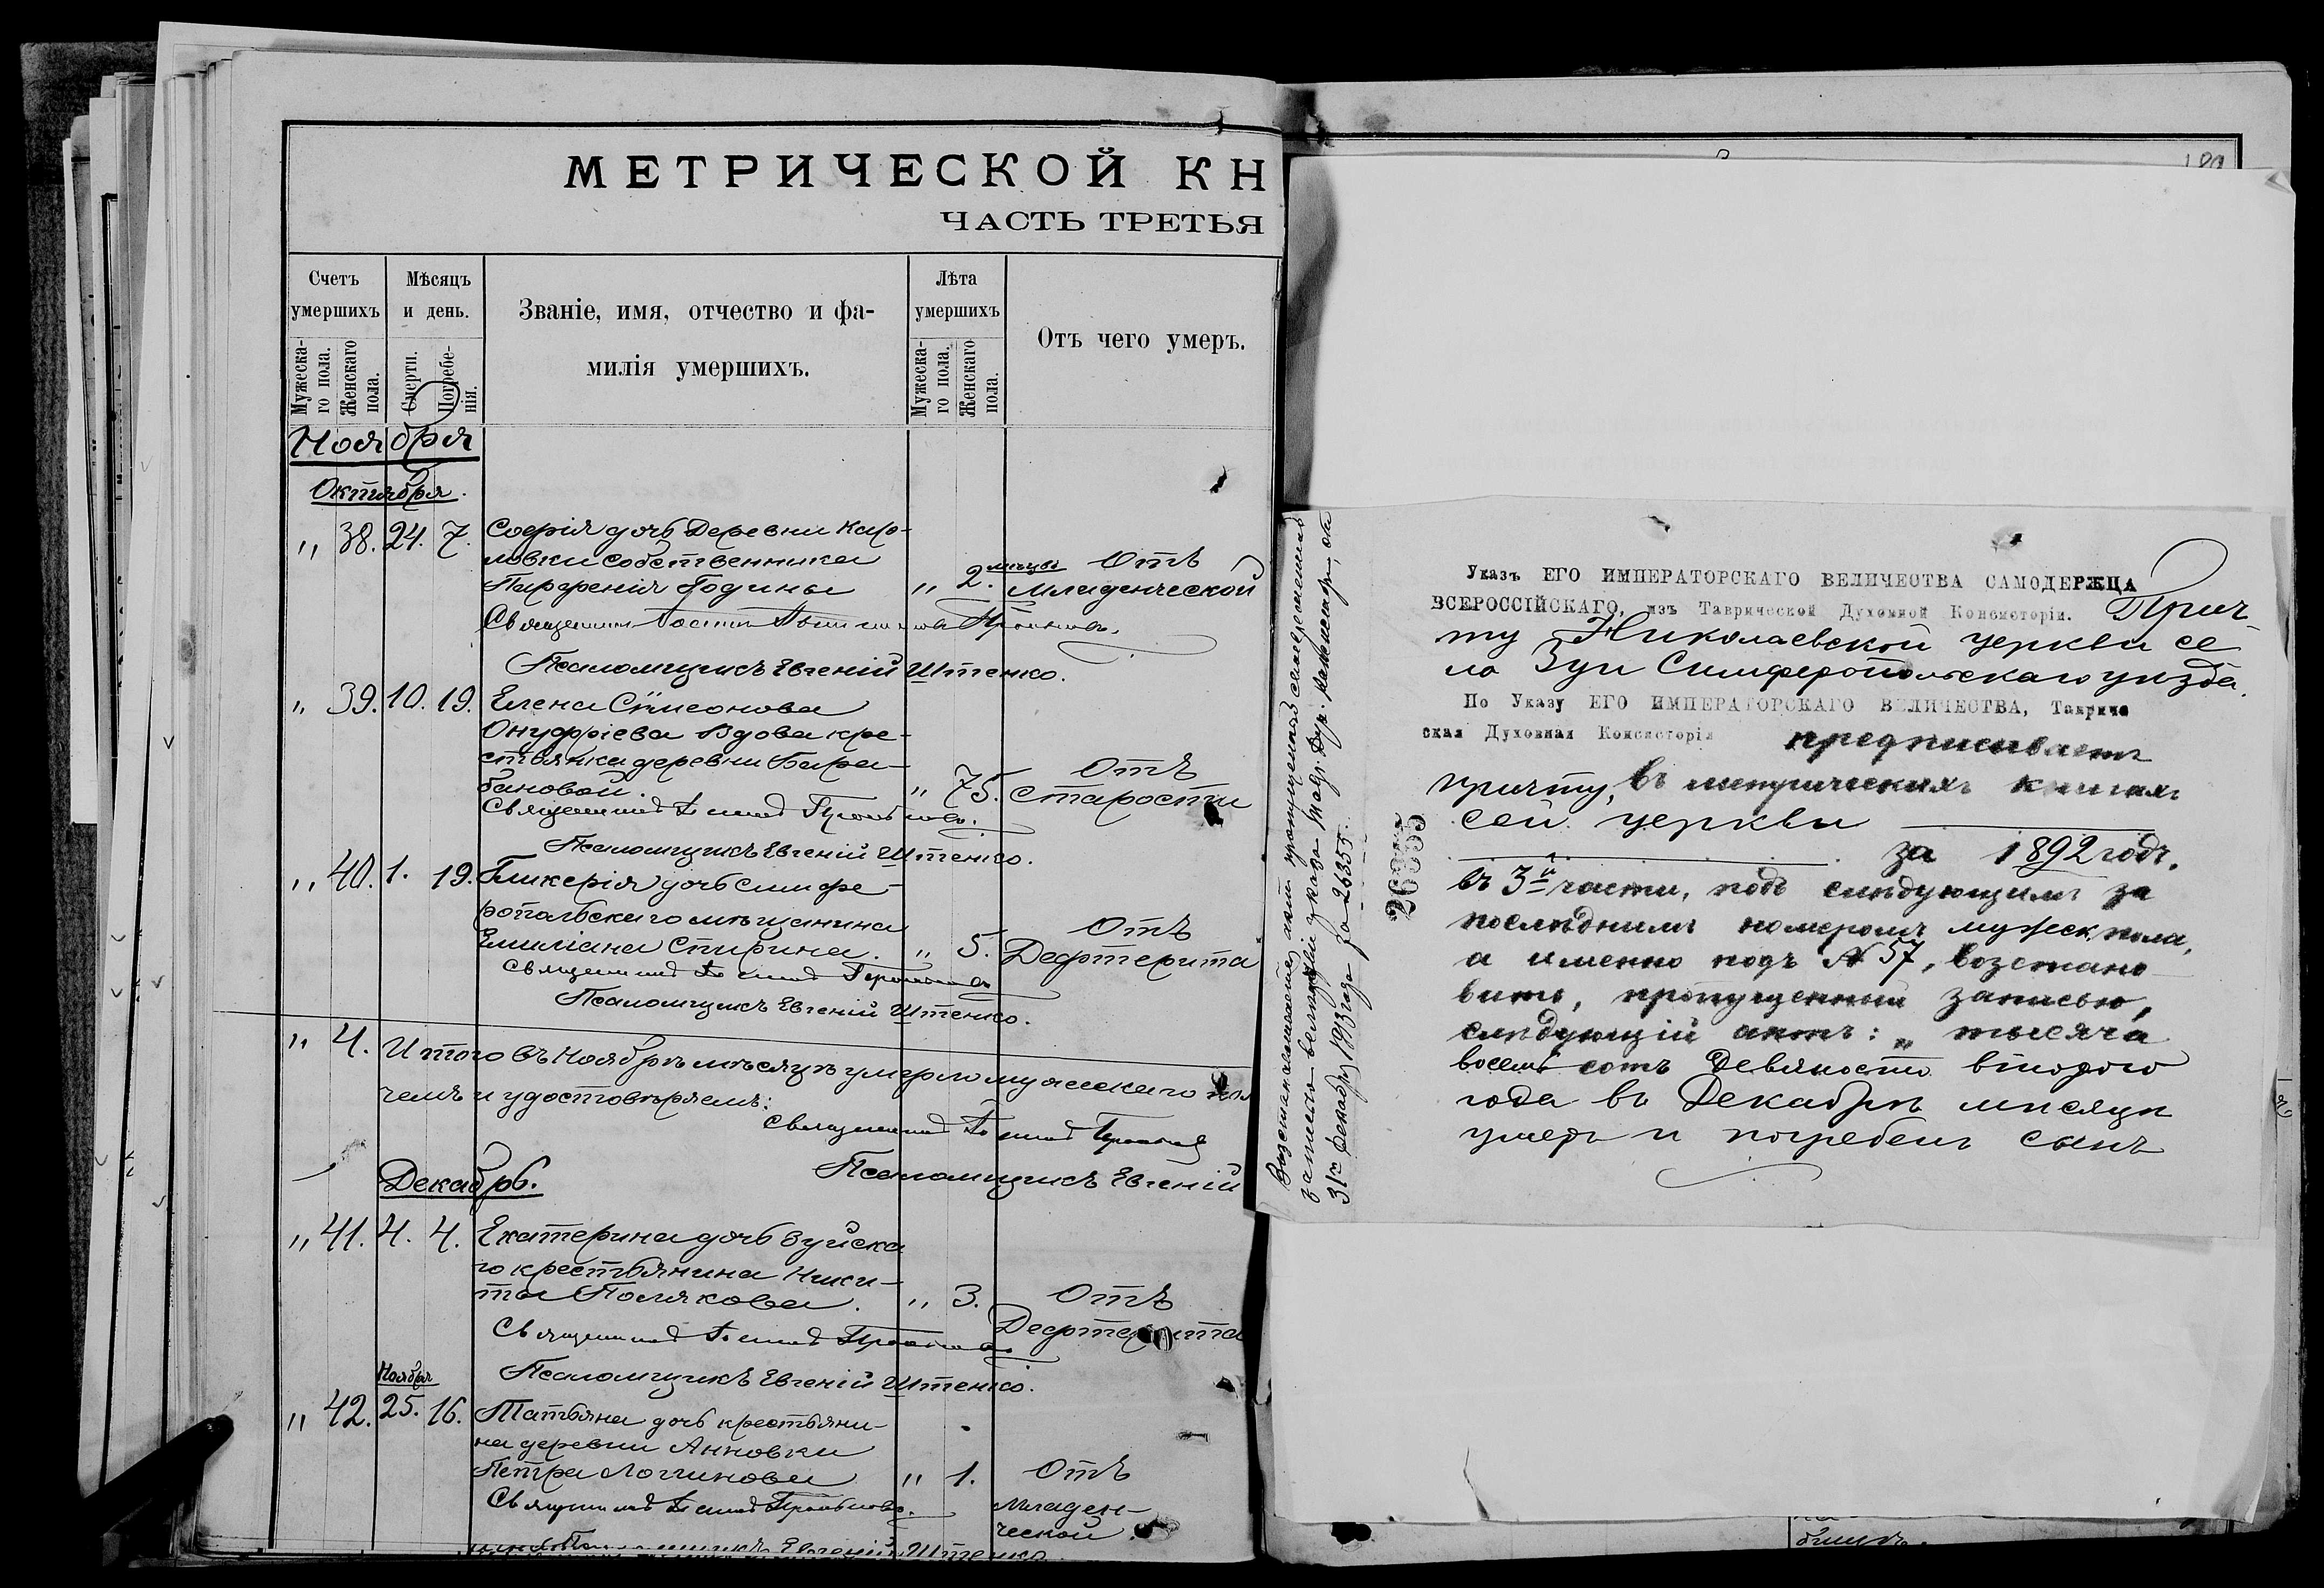 МЕТРИЧЕСКОЙ КН
ЧАСТЬ ТРЕТЬЯ
Счетъ умершихъ
Мужеска-го пола.
Женскаго пола.
Мѣсяцъ и день.
Смерти.
Погребе-нія.
Званіе, имя, отчество и фа-
милія умершихъ.
Лѣта умершихъ
Мужеска-го пола.
Женскаго пола.
Отъ чего умеръ.
Ноября
Октября.
" 38. 24. 7. Софія дочь Деревни Каро-
ловки собственника
Парфенія Години " 2. мѣсяц Отъ Младенческой
Священникъ
Псаломщикъ Евгеній Штенко.
" 39. 10. 19. Елена Сѵмеонова
Онуфріева Вдова кре-
стьянка деревни Бара-
бановой. " 75. Отъ Старости
Священникъ
Псаломщикъ Евгеній Штенко.
" 40. 1. 19. Гликерія дочь симфе-
ропольскаго мѣщанина
Емиліана Спирина. " 5. Отъ Дефтерита
Священникъ
Псаломщикъ Евгеній Штенко.
" 4. Итого въ Ноябрѣ мѣсяцѣ умерло мужескаго пол
чемъ и удостовѣряемъ:
Священникъ
Псаломщикъ Евгеній
Декабрь.
" 41. 4. 4. Екатерина дочь Зуйска
го крестьянина Ники-
ты Полякова. " 3. Отъ Дефтерита
Священникъ
Псаломщикъ Евгеній Штенко.
Ноября
" 42. 25. 16. Татьяна дочь крестьяни-
на деревни Анновки
Петра Логгинова " 1. Отъ Младен-
ческой.
Священникъ
Евгеній Штенко
Возстановленіе акта пропущеннаго
записью
31го Декабря 1913 года за 26355.
26355
Указъ ЕГО ИМПЕРАТОРСКАГО ВЕЛИЧЕСТВА САМОДЕРЖЦА
ВСЕРОССІЙСКАГО, изъ Таврической Духовной Консисторіи. Прич
ту Николаевской церкви се
ла Зуи Симферопольскаго уѣзда.
По Указу ЕГО ИМПЕРАТОРСКАГО ВЕЛИЧЕСТВА, Тавриче
ская Духовная Консисторія предписываетъ
причту, въ метрическихъ книгахъ
сей церкви
за 1892 годъ,
въ 3й части, подъ слѣдующимъ за
послѣднимъ номеромъ мужеск. пола,
а именно подъ № 57, возстано
вить, пропущенный записью,
слѣдующій актъ: „ тысяча
восемь сотъ Девяносто второго
года въ Декабрѣ мѣсяцѣ
умеръ и погребенъ сынъ